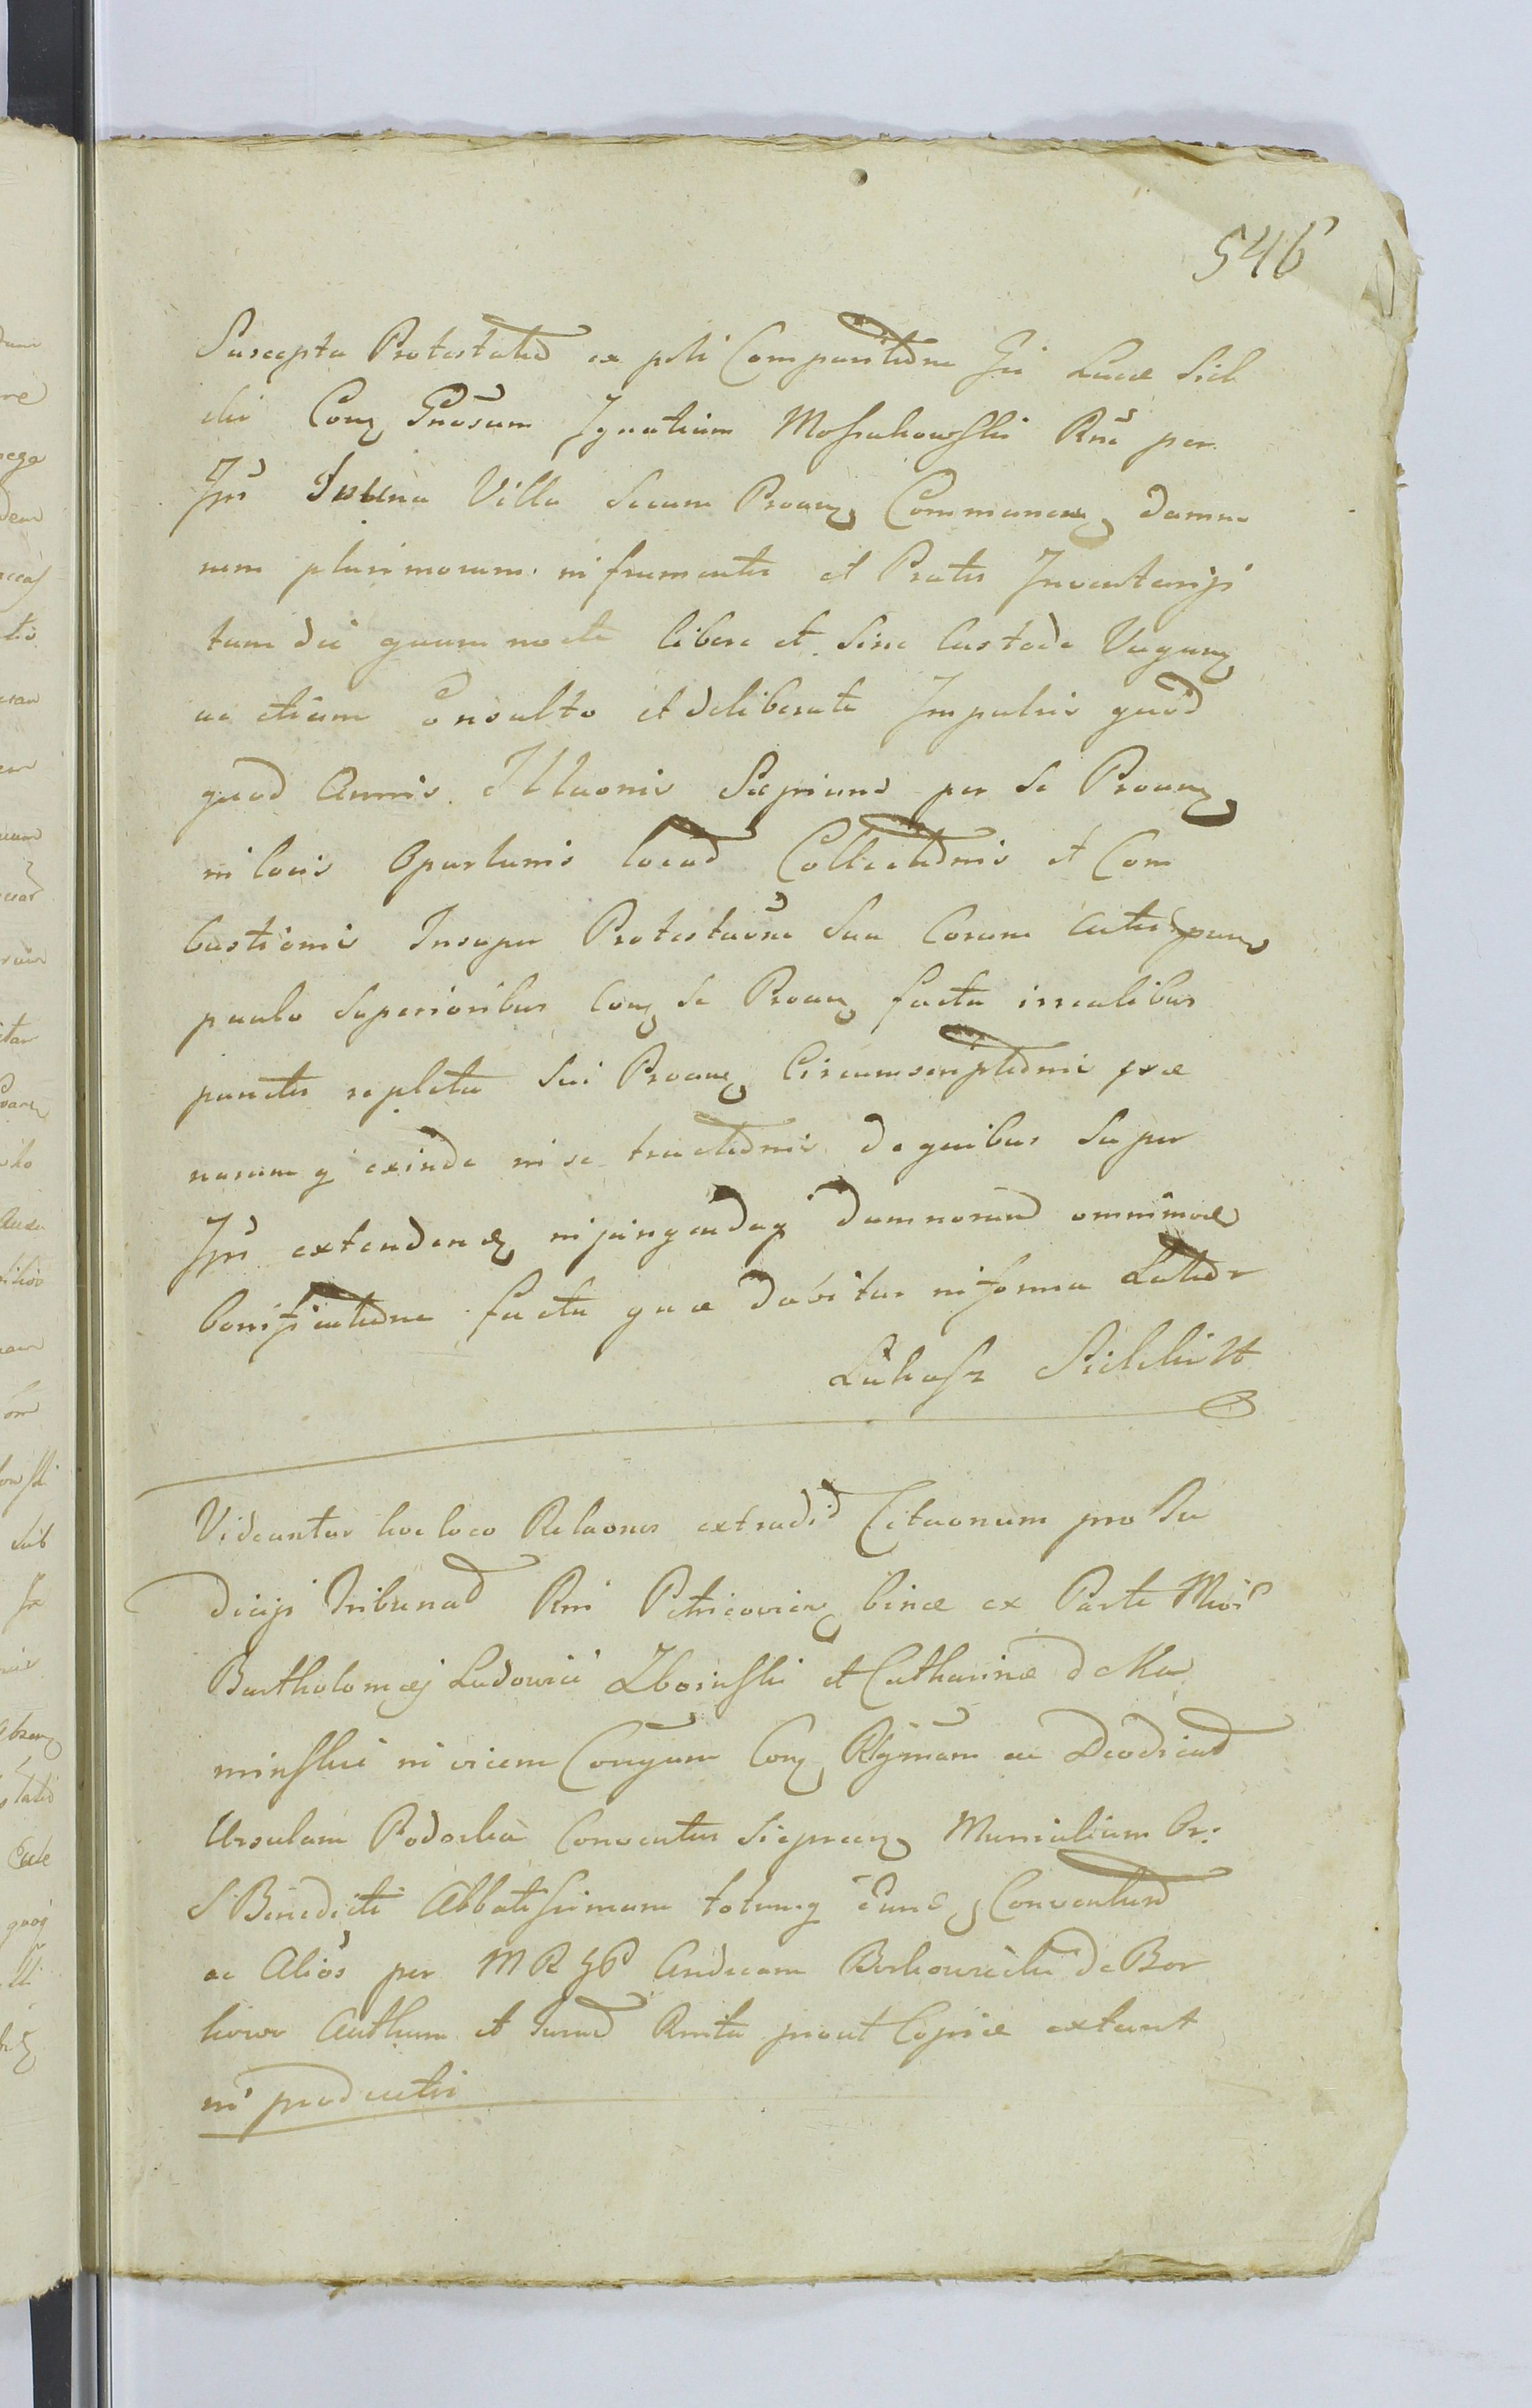 546
Suscepta Protestatio ex psti Comparitione Gsi Lucæ Siel
ski Cong Gnosum Ignatium Mossakowski Rne per
Ips In una Villa secum Proan Commanen damno
rum plurimorum in frumentis et Pratis Inventarij
tum die quam nocte libere et sine Custode Vagan
ac etiam consulto et deliberate Impulsis quod
quod Annis Illaonis Sæpium per se Proan
in locis Oportunis locad Collectionis et Com
bustionis Insuper Protestaone sua Coram Actis
paulo superioribus Cong se Proan facta irrealibus
punctis repleta sui Proan Circumscriptionis pœ
narum q exinde in se tractionis de quibus super
Ips extenden injungendaq damnorum omnimoda
bonificatione facta quæ dabitur in forma Latior
Lukasz Sielski
Videantur hoc loco Relaones extradit Citaonum pro Ju
dicijs Tribunal Rni Petricovien binæ ex Parte
Bartholomæj Ludovici Zboinski et Catharinæ de Ka
minskie in vicem Conjgum Cong ac Deodicat
Ursulam Podoska Conventus Sieprcen Monialium Or:
S Benedicti Abbatissimam totumq Conventum
ac Alios per Andream Borkowski de Bor
kowo Authum et Jurad prout Copiæ extant
in productis